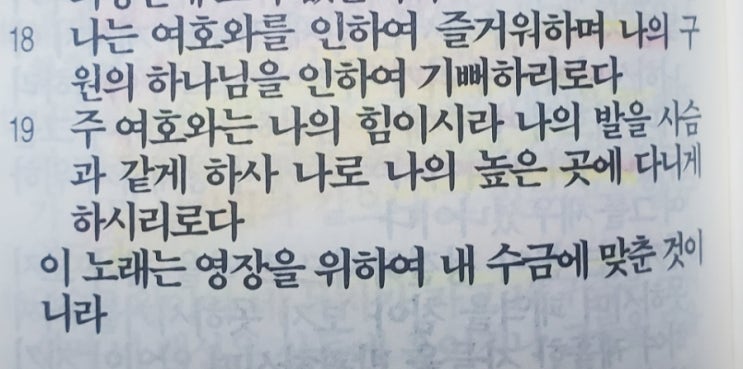 18 나는 여호와를 인하여 즐거워하며 나의 구
원의 하나님을 인하여 기뻐하리로다
19 주 여호와는 나의 힘이시라 나의 발을 사슴
과 같게 하사 나로 나의 높은 곳에 다니게
하시리로다
이 노래는 영장을 위하여 내 수금에 맞춘 것이
니라